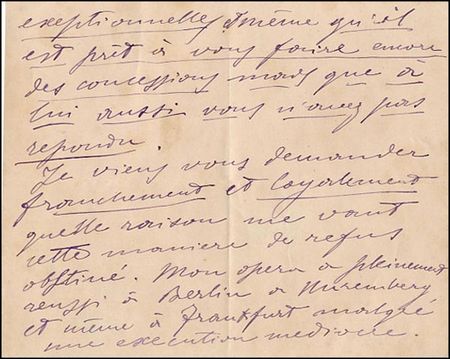 exeptionnelles. Même qu'il
est prêt à vous faire encore
des concessions mais que à
lui aussi vous n'avez pas
repondu.
Je viens vous demander
franchement et loyalement
quelle raison me vaut
cette maniere de refus
obstiné. Mon opera a pleinement
reussi à Berlin a Nuremberg
et même à Frankfurt malgré
une execution mediocre.